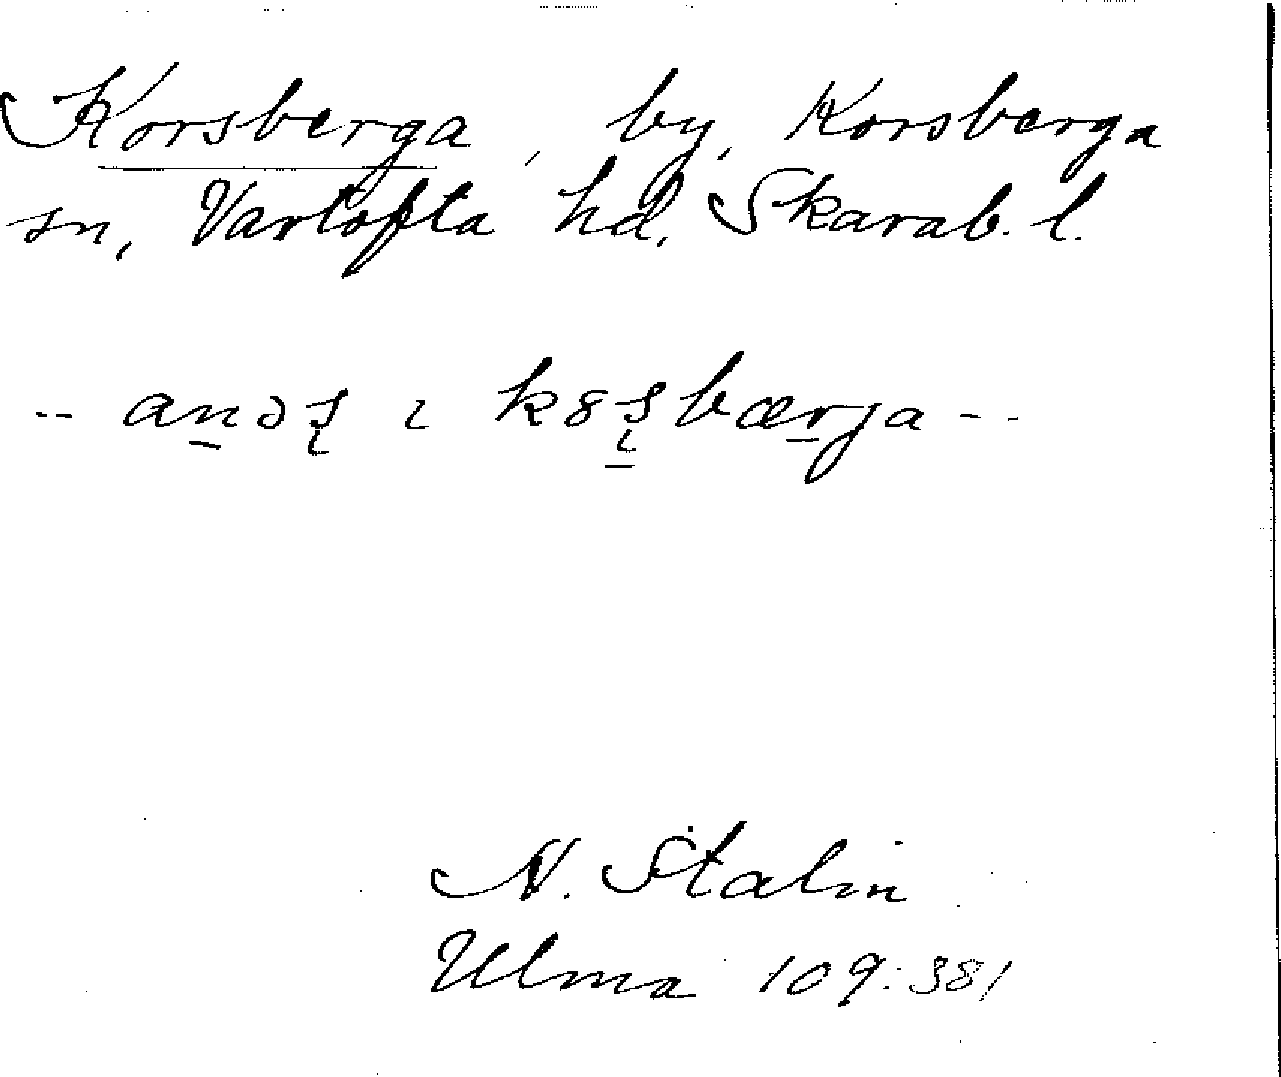 Korsberga, by, Korsberga
sn, Vartofta hd, Skarab. l.
-- anəʂ ɩ kɞʂbærja --
N. Stalin
Ulma 109:381